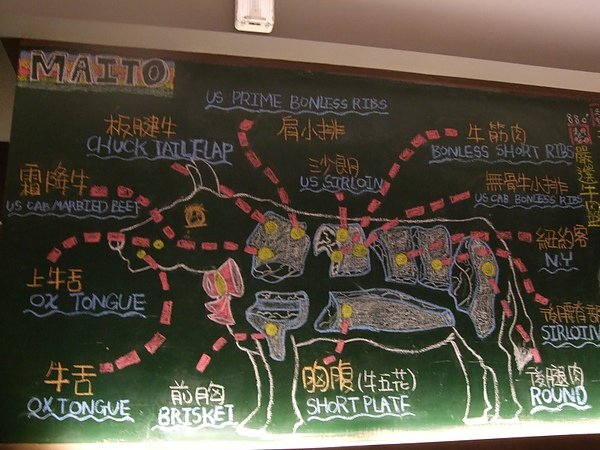 MAITO
US PRIME BONLESS RIBS
板腱牛
CHUCK TAILFLAP
肩小排
牛筋肉
BONLESS SHORT RIBS
沙朗
US SIRLOIN
霜降牛
US CAB MARBIED BEEF
無骨牛小排
US CAB BONLESS RIBS
紐約客
NY
上牛舌
OX TONGUE
後腰脊部
SIRLOIN
牛舌
OX TONGUE
前胸
BRISKET
胸腹(牛五花)
SHORT PLATE
後腿肉
ROUND